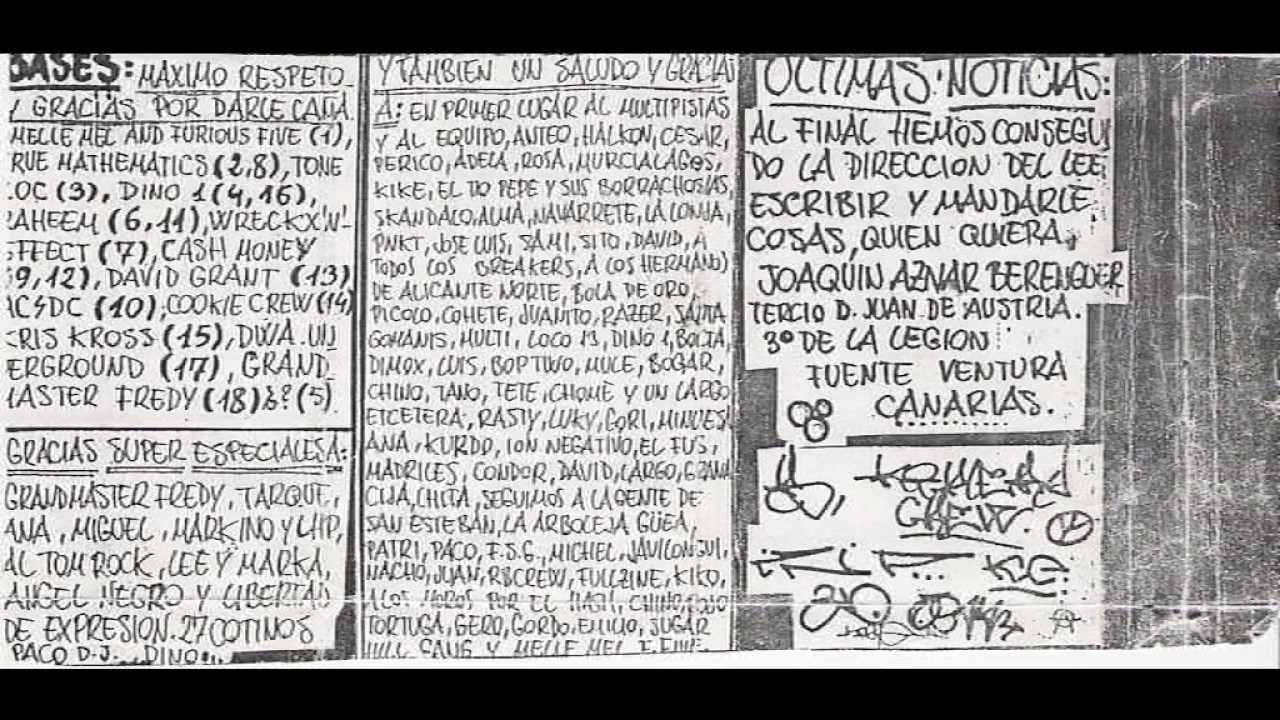 BASES: MAXIMO RESPETO
Y GRACIAS POR DARLE CAÑA
MELLE MEL AND FURIOUS FIVE (1),
RUE MATHEMATICS (2,8), TONE
OC (3), DINO 1 (4,16),
AHEEM (6,11), WRECKX'N'
FFECT (7), CASH MONEY
(9,12), DAVID GRANT (13),
ACSDC (10), COOKIE CREW (14)
CRIS KROSS (15), D.W.A. UN
ERGROUND (17), GRAND
MASTER FREDY (18) ¿? (5).
GRACIAS SUPER ESPECIALES A:
GRANDMASTER FREDY, TARQUE,
ANA, MIGUEL, MARKINO Y LHP,
AL TOM ROCK, LEE Y MARKA,
ANGEL NEGRO Y LIBERTAD
DE EXPRESION. 27 COTINOS
PACO D.J. DINO
Y TAMBIEN UN SALUDO Y GRACIAS
A: EN PRIMER LUGAR AL MULTIPISTAS
Y AL EQUIPO, ANTEO, HALKON, CESAR,
PERICO, ADELA, ROSA, MURCIALAGOS,
KIKE, EL TIO PEPE Y SUS BORRACHOSIAS,
SKANDALO, ALMA, NAVARRETE, LA LONJA,
PNKT, JOSE LUIS, SAMI, SITO, DAVID, A
TODOS LOS BREAKERS, A LOS HERMANOS
DE ALICANTE NORTE, BOLA DE ORO,
PICOLO, COHETE, JUANITO, RAZER, SANTA
GOMANIS, MULTI, LOCO 13, DINO 1, BOLTA,
DIMOX, LUIS, BOPTWO, MULE, BOGAR,
CHINO, TANO, TETE, CHOME Y UN LARGO
ETCETERA, RASTY, LUKY, GORI,
ANA, KURDO, ION NEGATIVO, EL FUS,
MADRILES, CONDOR, DAVID, LARGO, GRANA
CIJA, CHITA, SEGUIMOS A LA GENTE DE
SAN ESTEBAN, LA ARBOLEJA GÜEA,
PATRI, PACO, F.S.G., MICHEL, JAVILONGUI,
NACHO, JUAN, RSCREW, FULLZINE, KIKO,
A LOS MOROS POR EL HASH, CHINO,
TORTUGA, GERO, GORDO, EMILIO, JUGAR
HULL GANG Y MELLE MEL F. FIVE.
ULTIMAS NOTICIAS:
AL FINAL HEMOS CONSEGUI
DO LA DIRECCION DEL LEE
ESCRIBIR Y MANDARLE
COSAS, QUIEN QUIERA,
JOAQUIN AZNAR BERENGUER
TERCIO D. JUAN DE AUSTRIA.
3º DE LA LEGION
FUENTE VENTURA
CANARIAS.
CREW.